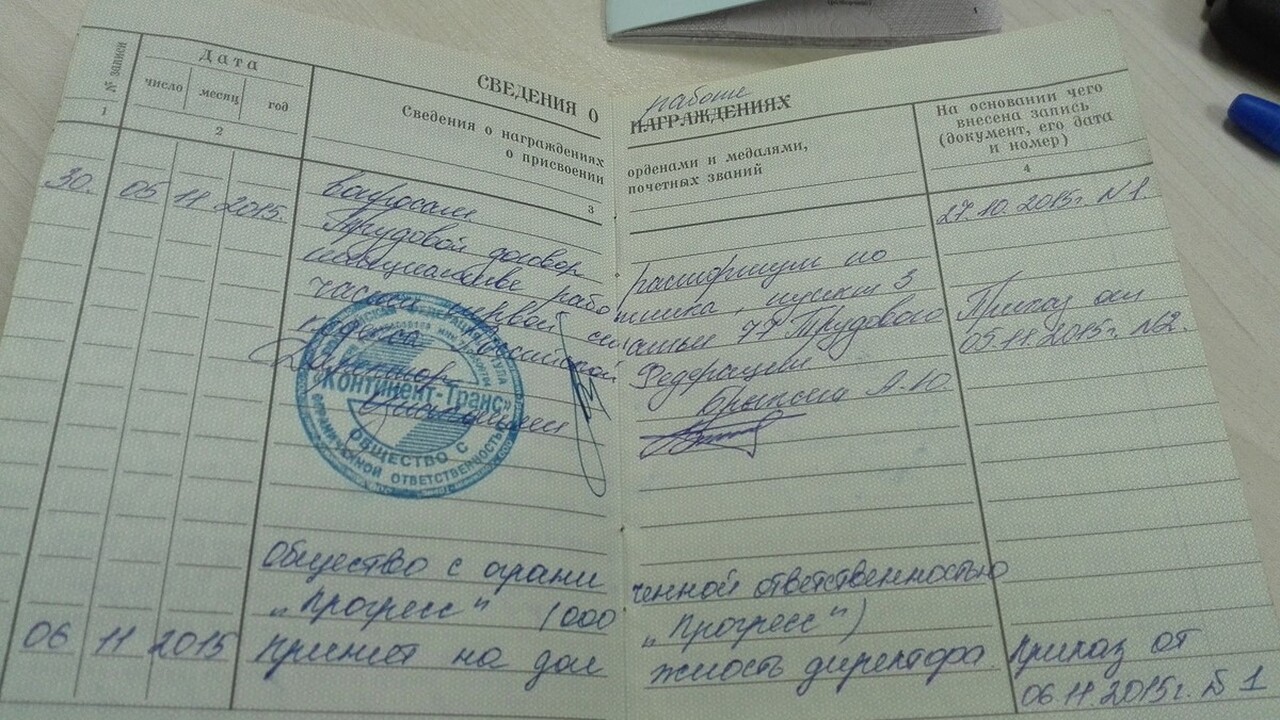 СВЕДЕНИЯ О работе НАГРАЖДЕНИЯХ
№ записи
Дата
число месяц год
Сведения о награждениях орденами и медалями,
о присвоении почетных званий
На основании чего
внесена запись
(документ, его дата
и номер)
1 2 3 4
вопросам 27.10.2015г. N1.
30. 05 11 2015. Трудовой договор расторгнут по
инициативе работника, пункт 3 Приказ от
части первой статьи 77 Трудового 05.11.2015г. N2.
кодекса Российской Федерации
Директор А.Ю.
«Континент-Транс»
ОБЩЕСТВО С
ОГРАНИЧЕННОЙ ОТВЕТСТВЕННОСТЬЮ
Общество с ограниченной ответственностью
„Прогресс" (ООО „Прогресс")
06 11 2015 принят на должность директора Приказ от
06.11.2015г. № 1